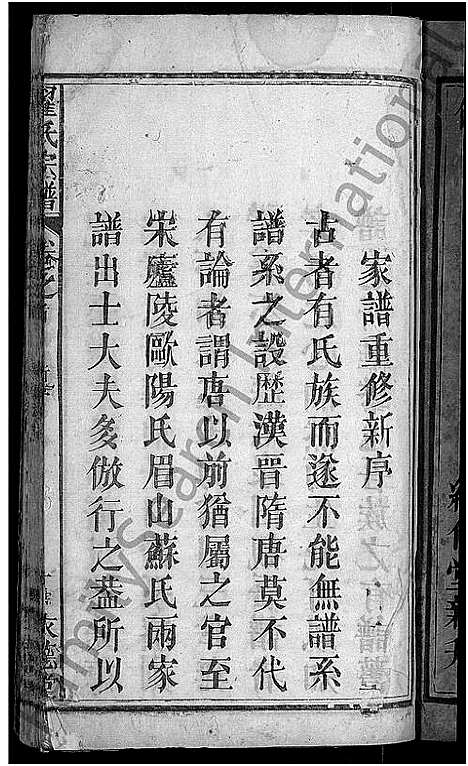 家譜重修新序
古者有氏族而遂不能無譜系
譜系之設歷漢晉隋唐莫不代
有論者謂唐以前猶屬之官至
宋廬陵歐陽氏眉山蘇氏兩家
譜出士大夫多倣行之葢所以
氏宗譜